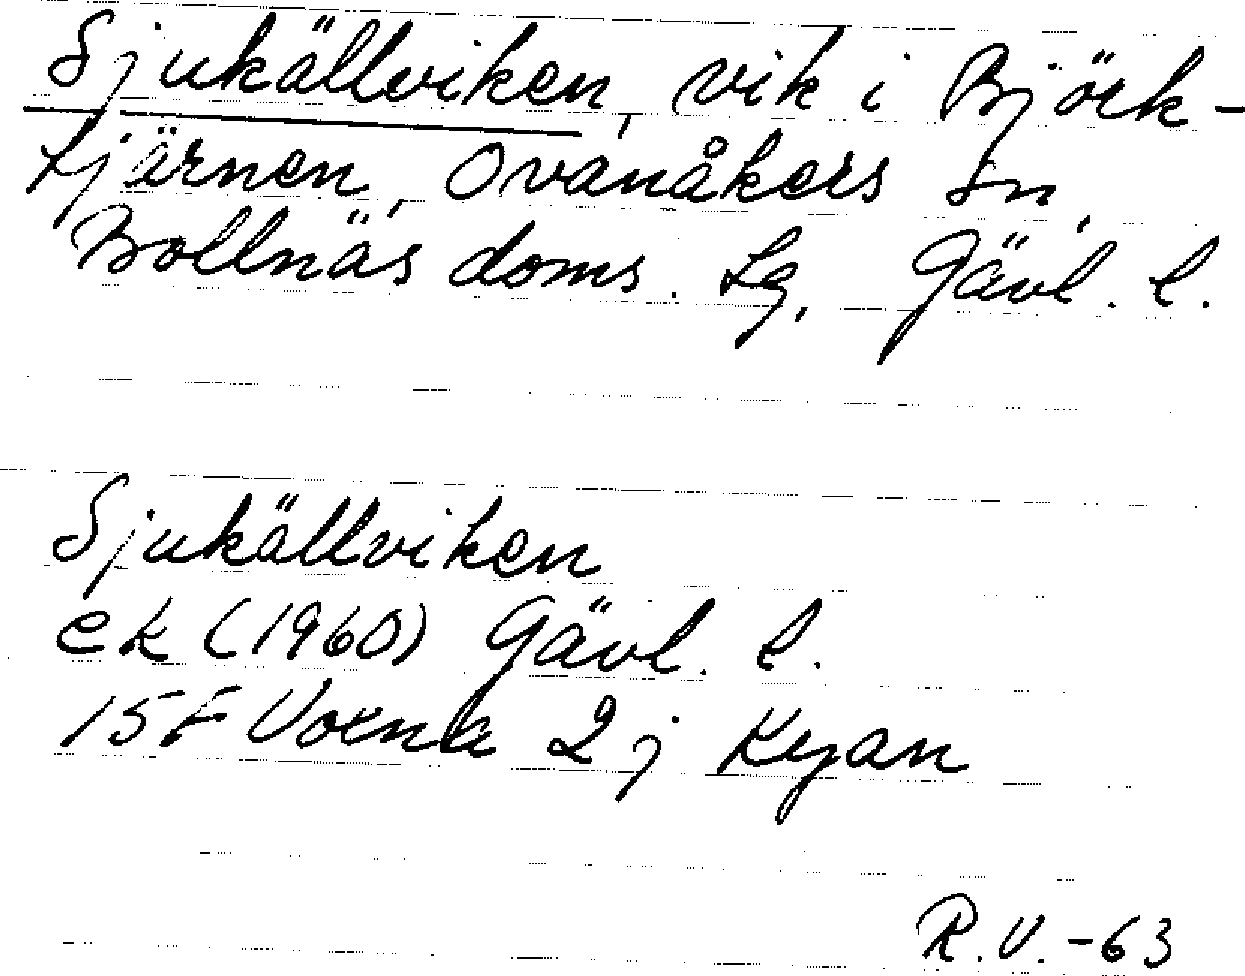 Sjukällviken, vik i Björk-
tjärnen, Ovanåkers sn,
Bollnäs doms. lg, Gävl. l.
Sjukällviken
ek (1960) Gävl. l.
15F Voxna 2j Kyan
R.V. -63